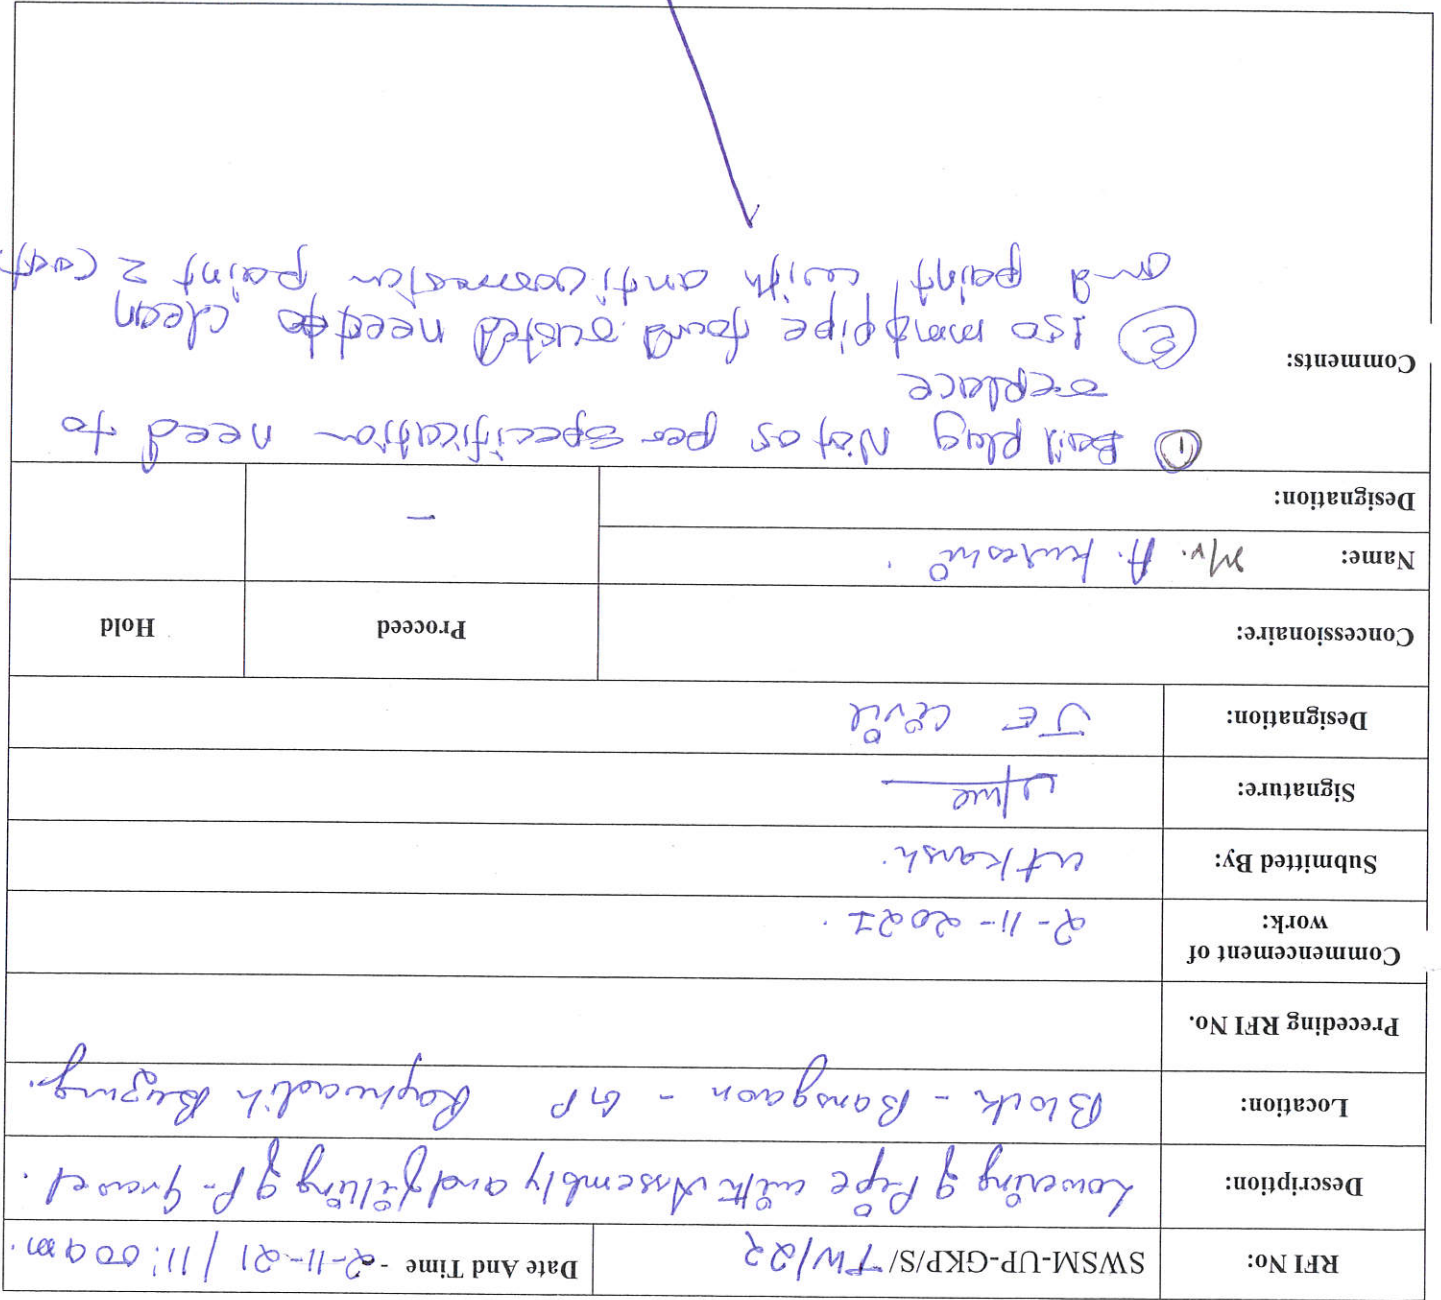 RFI No: SWSM-UP-GKP/S/ TW/22 Date And Time - 2-11-21 / 11:00 am.
Description: Lowering of Pipe with Assembly and filling of P-Gravel.
Location: Block - Bansgaon - GP Raghwadih Buzurg.
Preceding RFI No.
Commencement of
work: 2-11-2021.
Submitted By: utkarsh.
Signature:
Designation: JE Civil
Concessionaire: Proceed Hold
Name: Mr. A. kureshi. -
Designation:
① Bail plug Not as per specification need to
replace
Comments:
② 150 mmφ pipe found rusted need to clean
and paint with anti corrosion paint 2 coat.